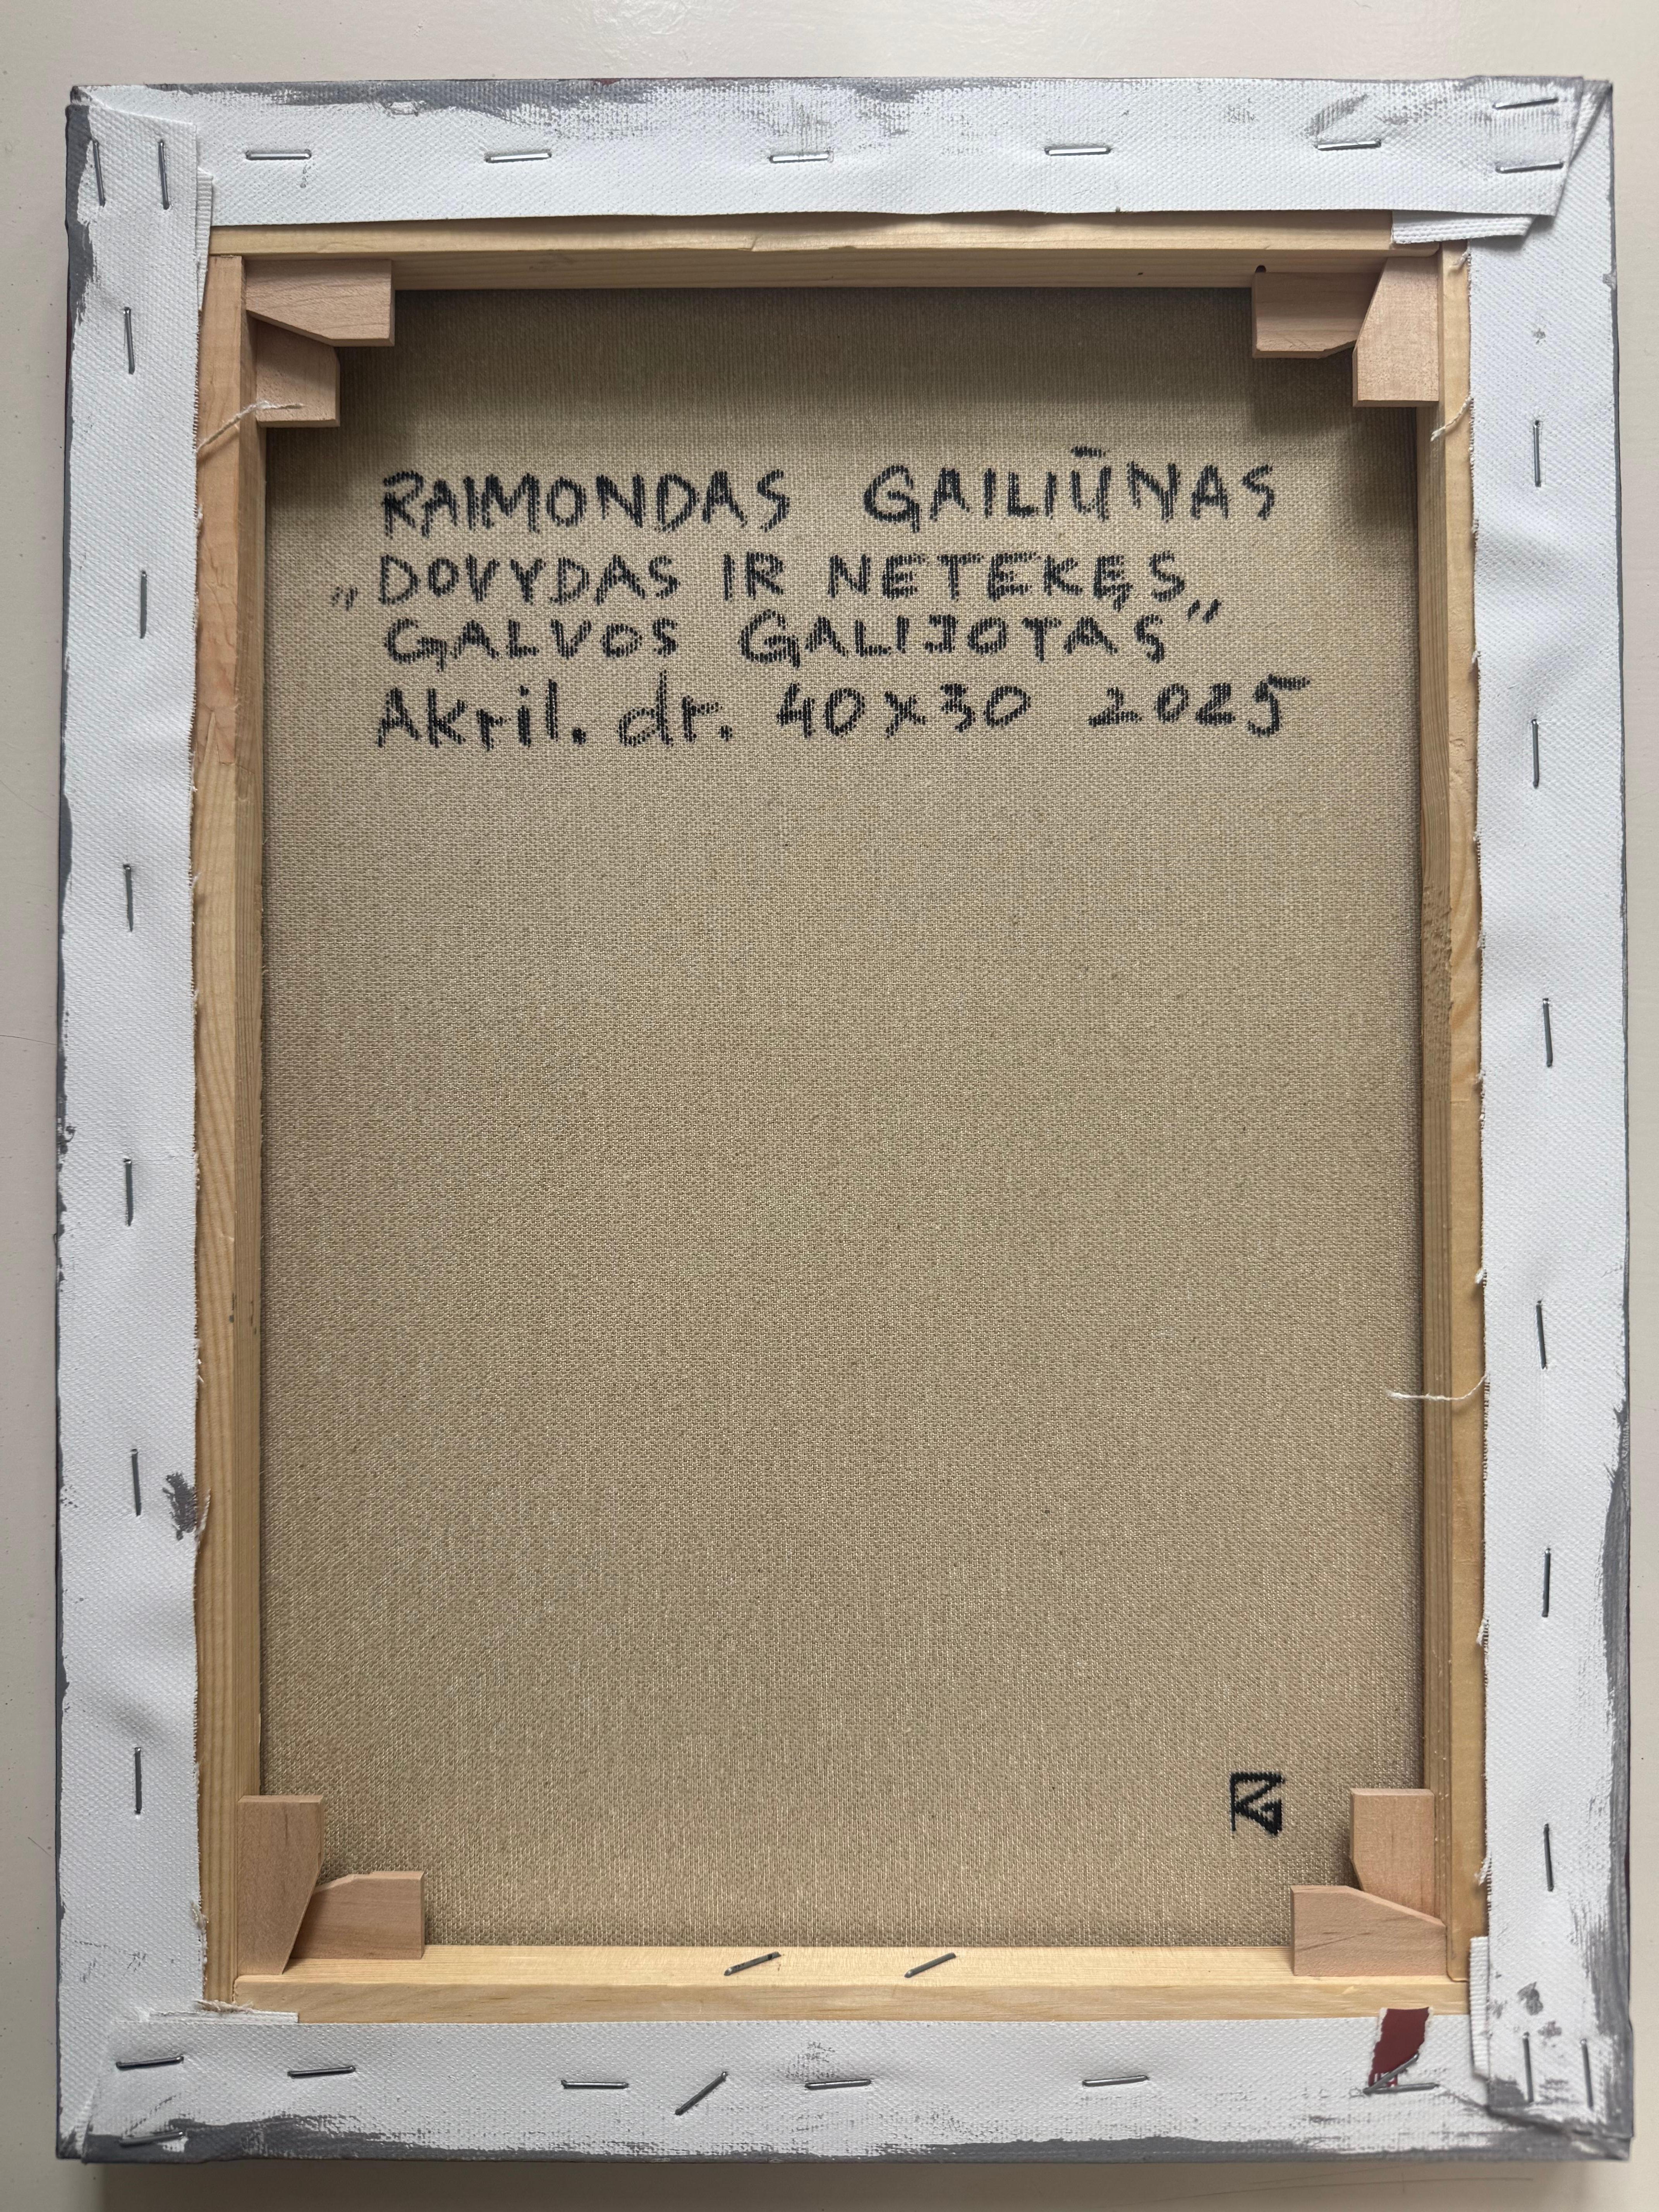 RAIMONDAS GAILIŪNAS
„DOVYDAS IR NETEKĘS
GALVOS GALIJOTAS”
Akril. dr. 40x30 2025
RG